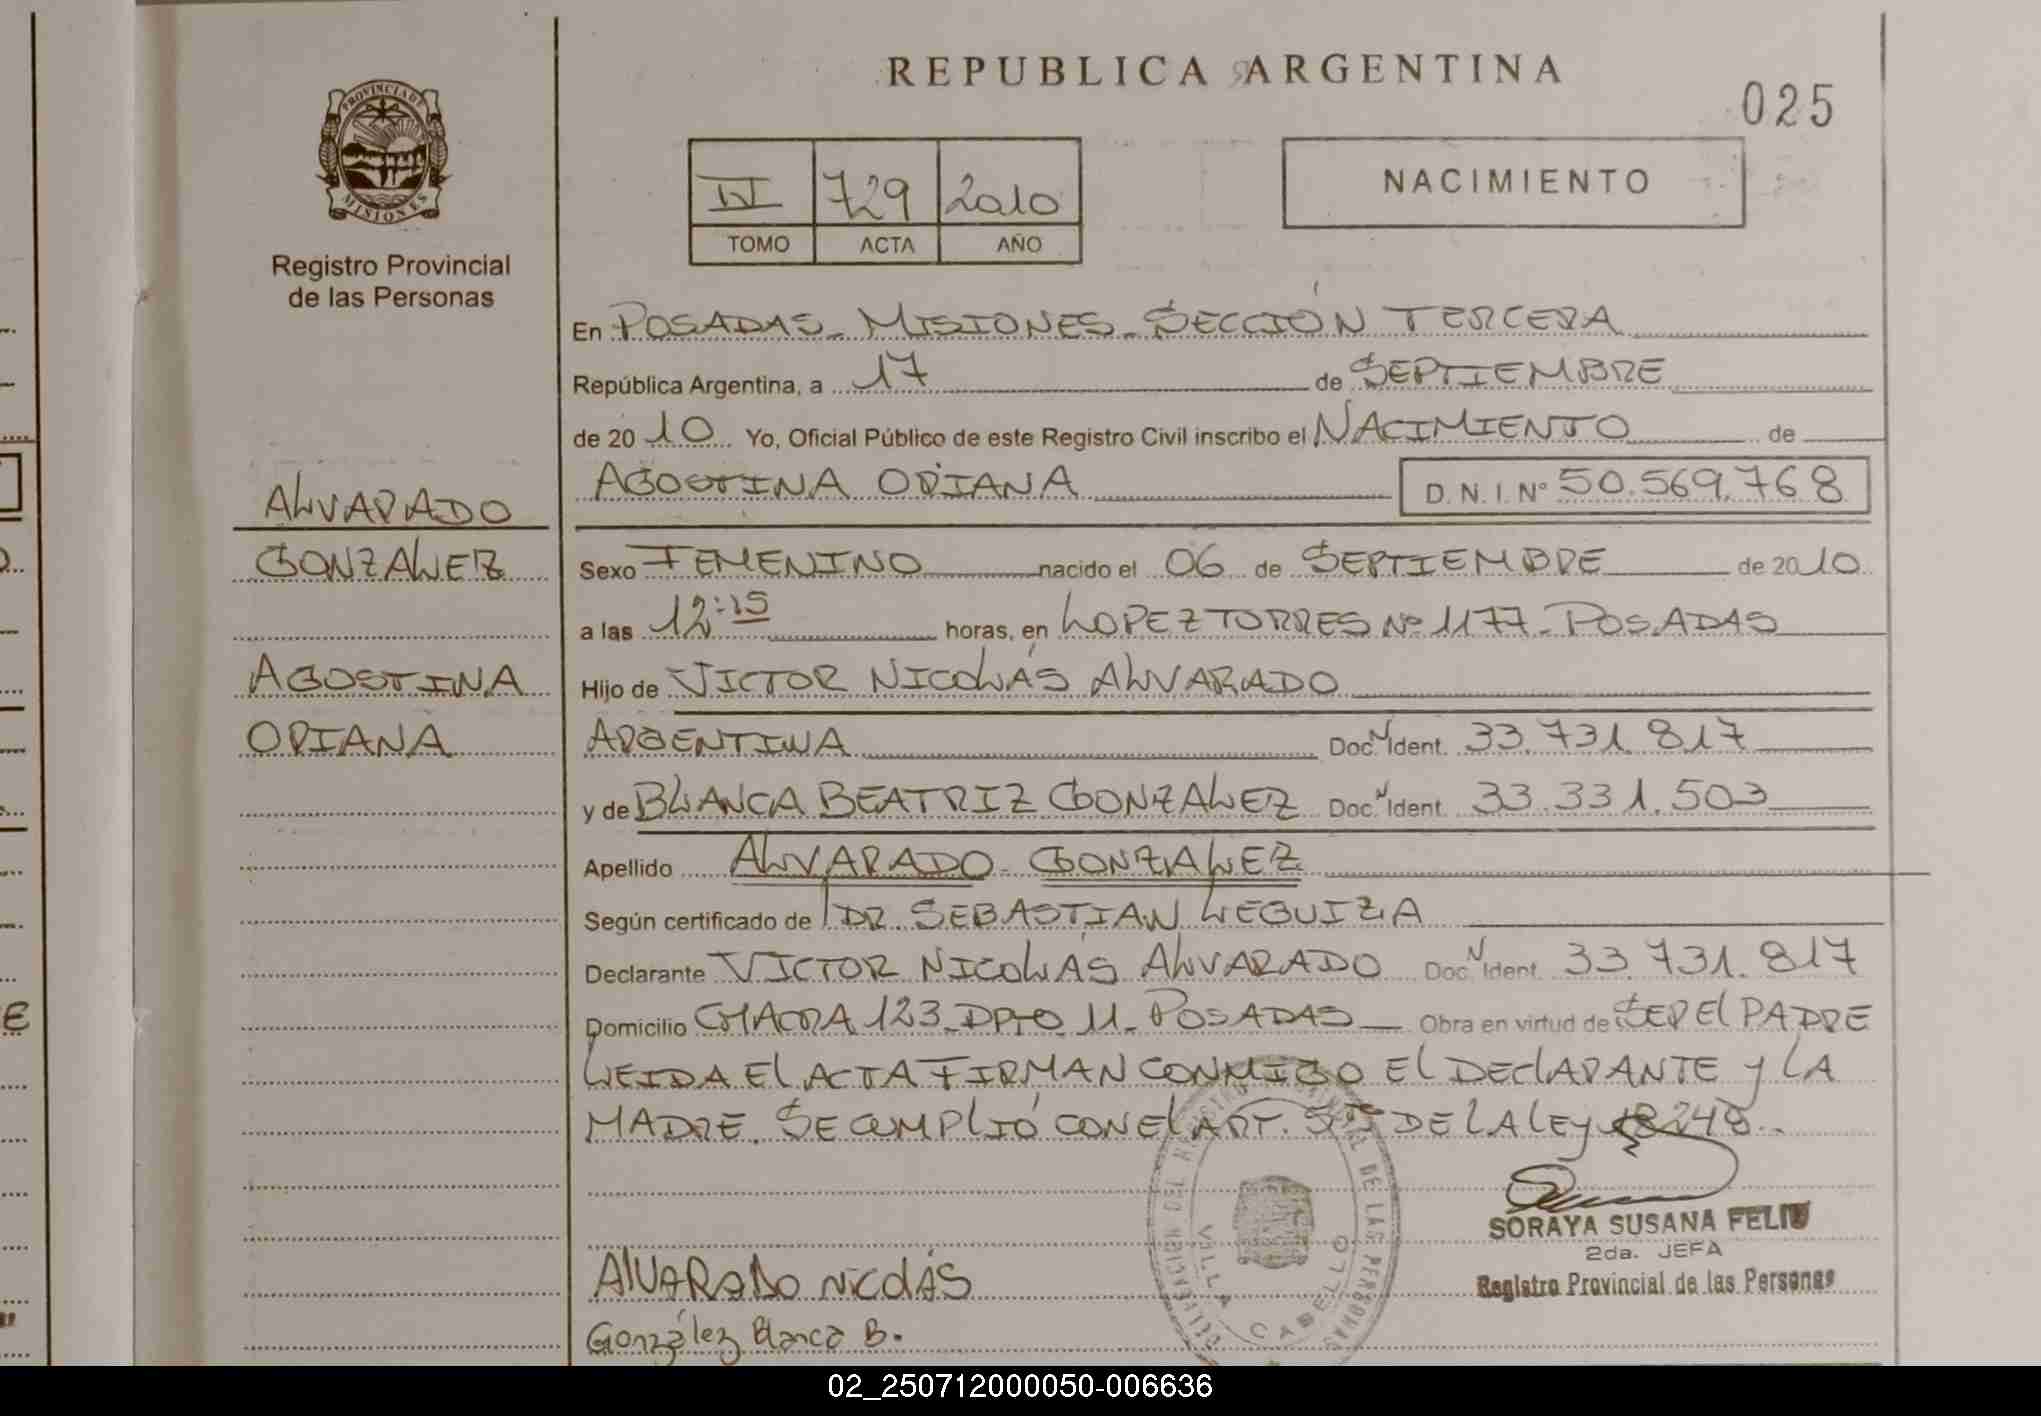 REPUBLICA ARGENTINA
025
PROVINCIA DE
MISIONES
Registro Provincial
de las Personas
IV 729 2010
TOMO ACTA AÑO
NACIMIENTO
En POSADAS - MISIONES - SECCIÓN TERCERA
República Argentina, a 17 de SEPTIEMBRE
de 2010 Yo, Oficial Público de este Registro Civil inscribo el NACIMIENTO de
AGOSTINA ORIANA D.N.I. Nº 50.569.768
ALVARADO
GONZALEZ
AGOSTINA
ORIANA
Sexo FEMENINO nacido el 06 de SEPTIEMBRE de 2010
a las 12:15 horas, en LOPEZ TORRES Nº 1177 - POSADAS
Hijo de VICTOR NICOLÁS ALVARADO
ARGENTINA Doc. Ident. 33.731.817
y de BLANCA BEATRIZ GONZALEZ Doc. Ident. 33.331.503
Apellido ALVARADO GONZALEZ
Según certificado de DR. SEBASTIAN LEGUIZA
Declarante VICTOR NICOLÁS ALVARADO Doc. Ident. 33.731.817
Domicilio CHACRA 123 - DPTO 11 - POSADAS Obra en virtud de SER El PADRE
LEIDA El ACTA FIRMAN CONMIGO El DEClARANTE y LA
MADRE. SE CUMPLIÓ CON El ART. 5to DE LA LEy 18248.
DELEGACION DEL REGISTRO PROVINCIAL DE LAS PERSONAS
VILLA CABELLO
SORAYA SUSANA FELIU
2da. JEFA
Registro Provincial de las Personas
AlVARADO NicOlÁS
González Blanca B.
02_250712000050-006636